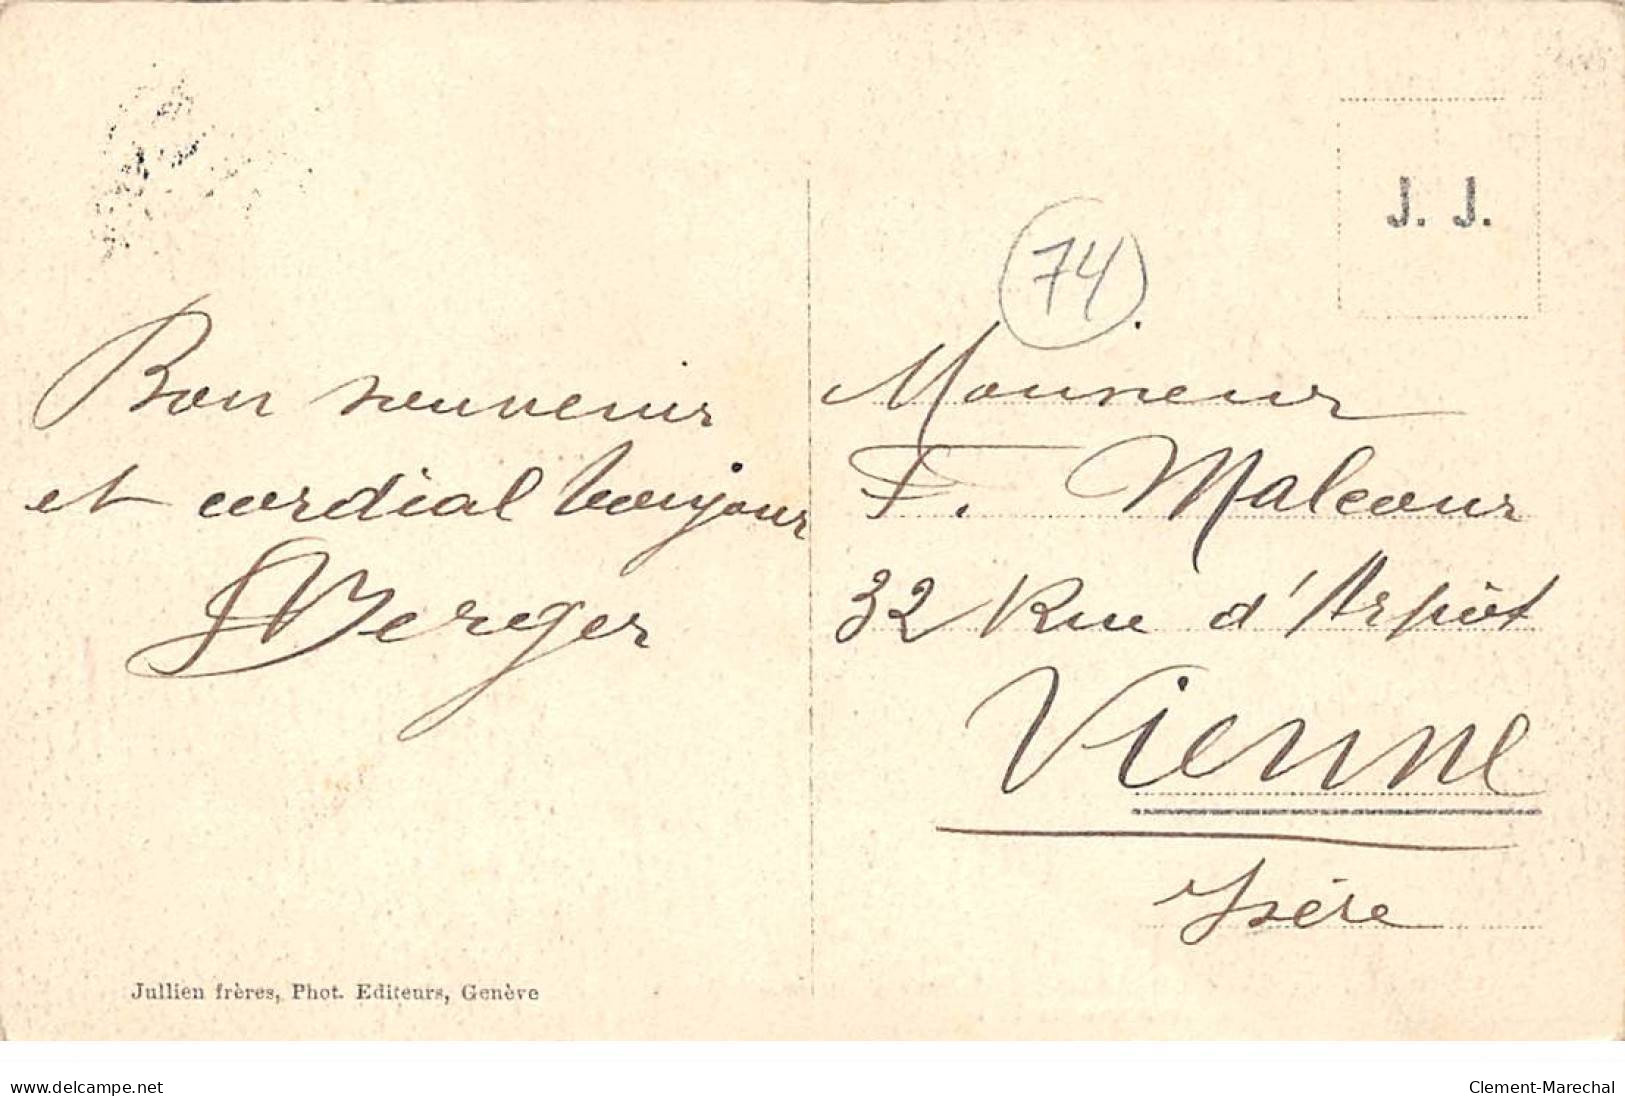 Bon souvenir
et cordial bonjour
Berger
74
J. J.
Monsieur
F. Malcour
32 Rue d'Arpôt
Vienne
Isère
Jullien frères, Phot. Editeurs, Genève
www.delcampe.net
Clement-Marechal